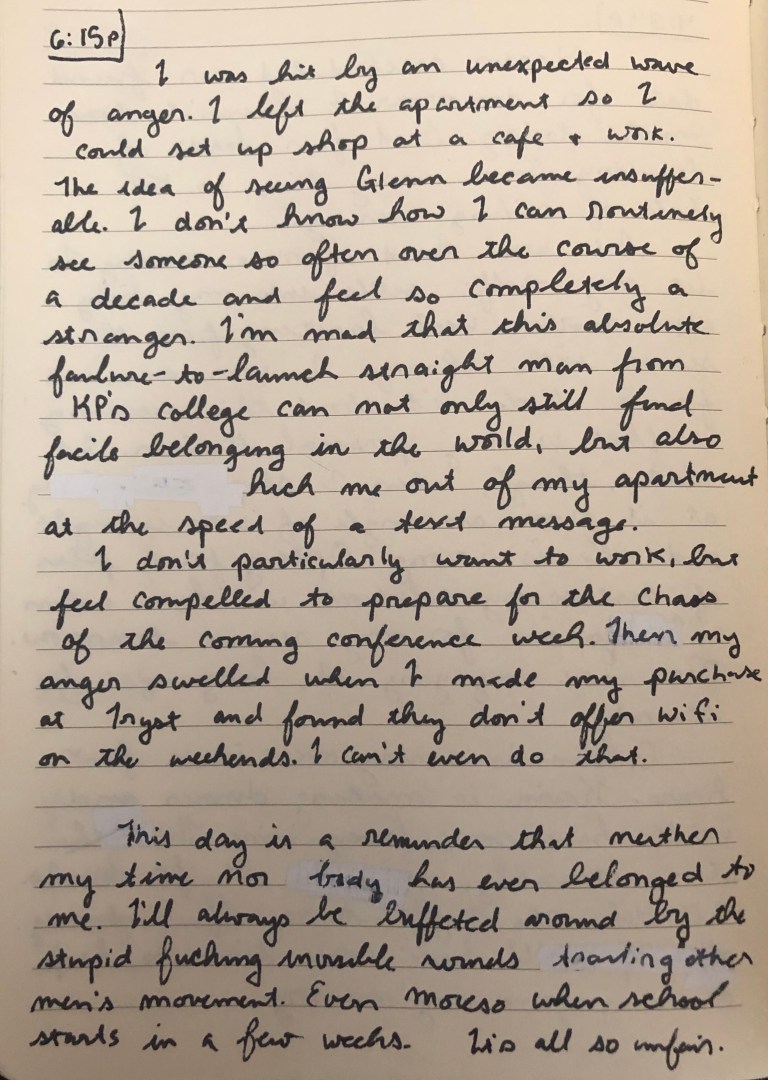 6:15p
I was hit by an unexpected wave
of anger. I left the apartment so I
could set up shop at a cafe + work.
The idea of seeing Glenn became insuffer-
able. I don't know how I can routinely
see someone so often over the course of
a decade and feel so completely a
stranger. I'm mad that this absolute
failure-to-launch straight man from
KP's college can not only still find
facile belonging in the world, but also
kick me out of my apartment
at the speed of a text message.
I don't particularly want to work, but
feel compelled to prepare for the chaos
of the coming conference week. Then my
anger swelled when I made my purchase
at Tryst and found they don't offer wifi
on the weekends. I can't even do that.
This day is a reminder that neither
my time nor body has ever belonged to
me. I'll always be buffeted around by the
stupid fucking invisible winds trailing other
men's movement. Even moreso when school
starts in a few weeks. It's all so unfair.